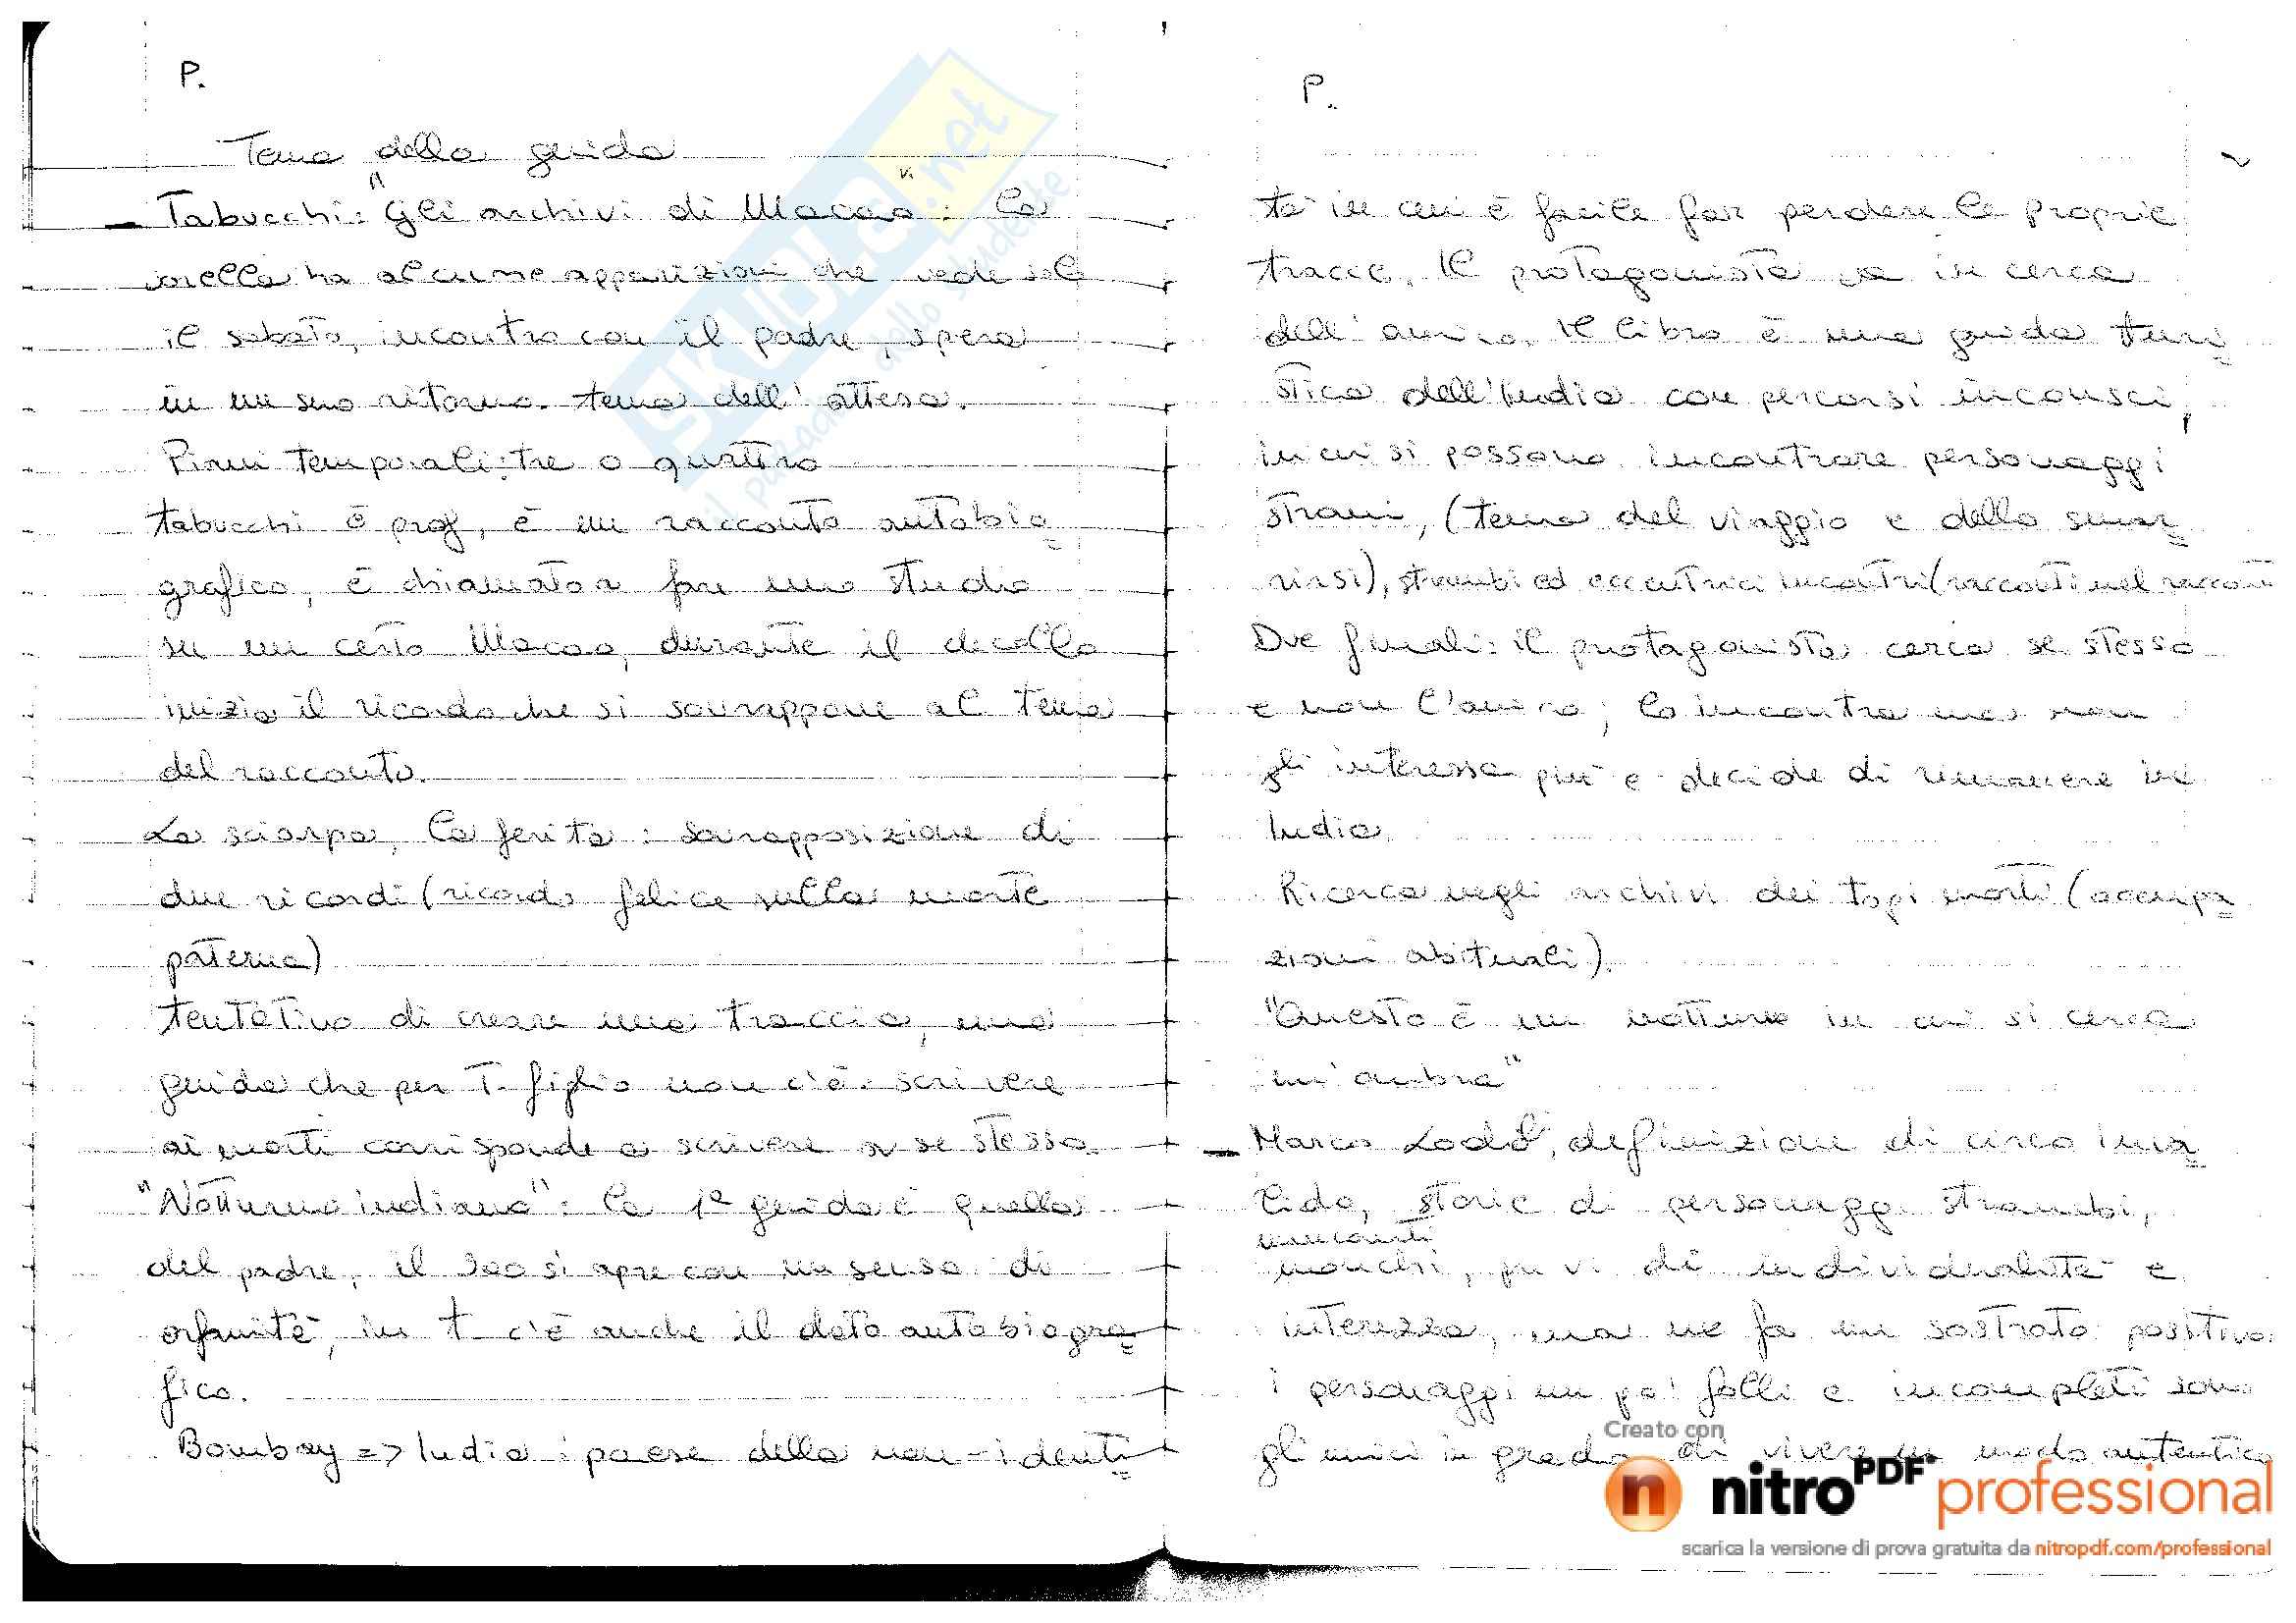 P.
Tema della guida
- Tabucchi: "Gli archivi di Macao: la
vi
sorella ha alcune apparizioni che vede solo
il sabato, incontra con il padre, spera
in un suo ritorno. tema dell'attesa.
Piani temporali: tre o quattro
tabucchi è prof, è un racconto autobio
grafico, è chiamato a fare uno studio
su un certo Macao, durante il decollo
inizia il ricordo che si sovrappone al tema
del racconto.
La sciarpa, la ferita: sovrapposizione di
due ricordi (ricordo felice sulla morte
paterna)
tentativo di creare una traccia, una
guida che per T. figlio non c'è. scrivere
ai morti corrisponde a scrivere a se stesso.
"Notturno indiano": la 1ª guida è quella
del padre, il 900 si apre con un senso di
orfanità, in T. c'è anche il dato autobiogra
fico.
Bombay => India: paese della non-identi
P.
2
tà in cui è facile far perdere le proprie
tracce. Il protagonista va in cerca
dell'amico. Il libro è una guida turi
stica dell'India con percorsi inconsci,
in cui si possono incontrare personaggi
strani, (tema del viaggio e dello smar
rirsi), strambi ed eccentrici incontri (racconti nel racconto
Due finali: il protagonista cerca se stesso
e non l'amico; lo incontra ma non
gli interessa più e decide di rimanere in
India.
Ricerca negli archivi dei topi morti (occupa
zioni abituali).
"Questo è un notturno in cui si cerca
un'ombra"
- Marco Lodoli, definizione di circo inva
lido, storie di personaggi strambi,
mancanti
monchi, privi di individualità e
interezza, ma ne fa un sostrato positivo.
i personaggi un po' folli e incompleti sono
gli unici in grado di vivere in modo autentico
SKUOLA.net
il paradiso dello studente
Creato con
nitroPDF professional
scarica la versione di prova gratuita da nitropdf.com/professional